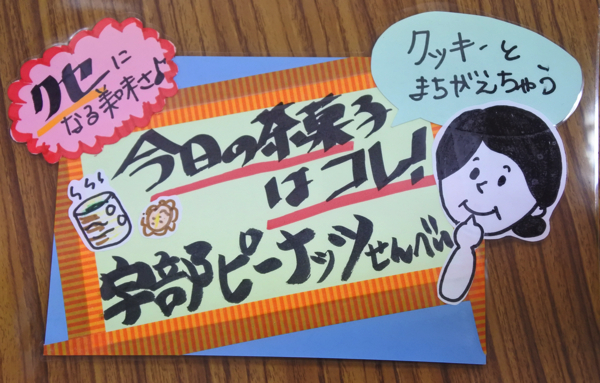 クセに
なる美味さ♪
クッキーと
まちがえちゃう
今日の茶菓子
はコレ!
宇部ピーナッツせんべい